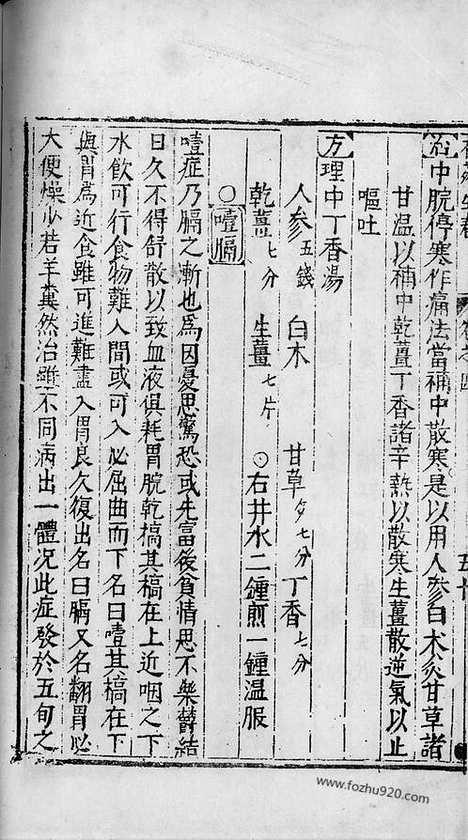 治中脘停寒作痛法當補中散寒是以用人參白木炙甘草諸
甘温以補中乾薑丁香諸辛熱以散寒生薑散逆氣以止
嘔吐
方理中丁香湯
人參五錢 白木 甘草炙七分 丁香七分
乾薑七分 生薑七片 ○右井水二鍾煎一鍾温服
○噎膈
噎症乃膈之漸也為因憂思驚恐或先富後貧情思不樂欝結
日久不得舒散以致血液俱耗胃脘乾槁其槁在上近咽之下
水飲可行食物難入間或可入必屈曲而下名曰噎其槁在下
與胃為近食雖可進難盡入胃良久復出名曰膈又名翻胃必
大便燥少若羊糞然治雖不同病出一體况此症發於五旬之
www.fozhu920.com